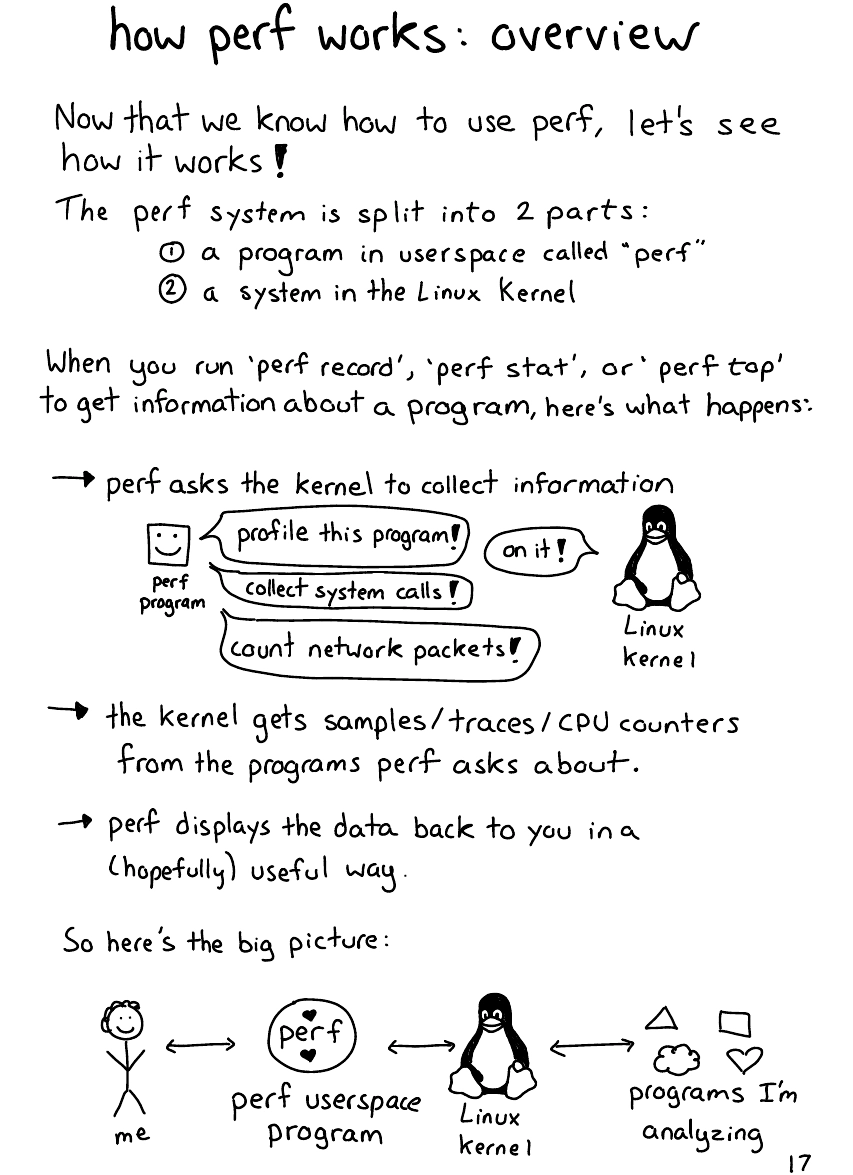 how perf works: overview
Now that we know how to use perf, let's see
how it works!
The perf system is split into 2 parts:
① a program in userspace called "perf"
② a system in the Linux Kernel
When you run 'perf record', 'perf stat', or 'perf top'
to get information about a program, here's what happens:
→ perf asks the kernel to collect information
profile this program!
on it!
perf
program
collect system calls!
count network packets!
Linux
kernel
→ the kernel gets samples/traces/CPU counters
from the programs perf asks about.
→ perf displays the data back to you in a
(hopefully) useful way.
So here's the big picture:
perf
me
perf userspace
program
Linux
kernel
programs I'm
analyzing
17